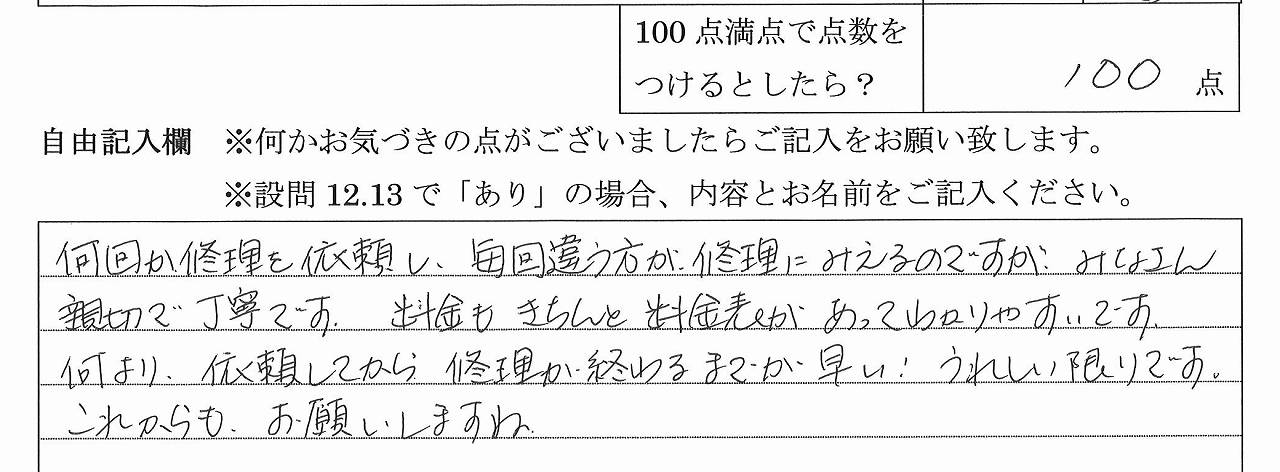 100点満点で点数を
つけるとしたら？
100 点
自由記入欄 ※何かお気づきの点がございましたらご記入をお願い致します。
※設問12.13で「あり」の場合、内容とお名前をご記入ください。
何回か修理を依頼し、毎回違う方が修理にみえるのですが、みなさん
親切で丁寧です。料金もきちんと料金表があってわかりやすいです。
何より、依頼してから修理が終わるまでが早い！うれしい限りです。
これからも、お願いしますね。